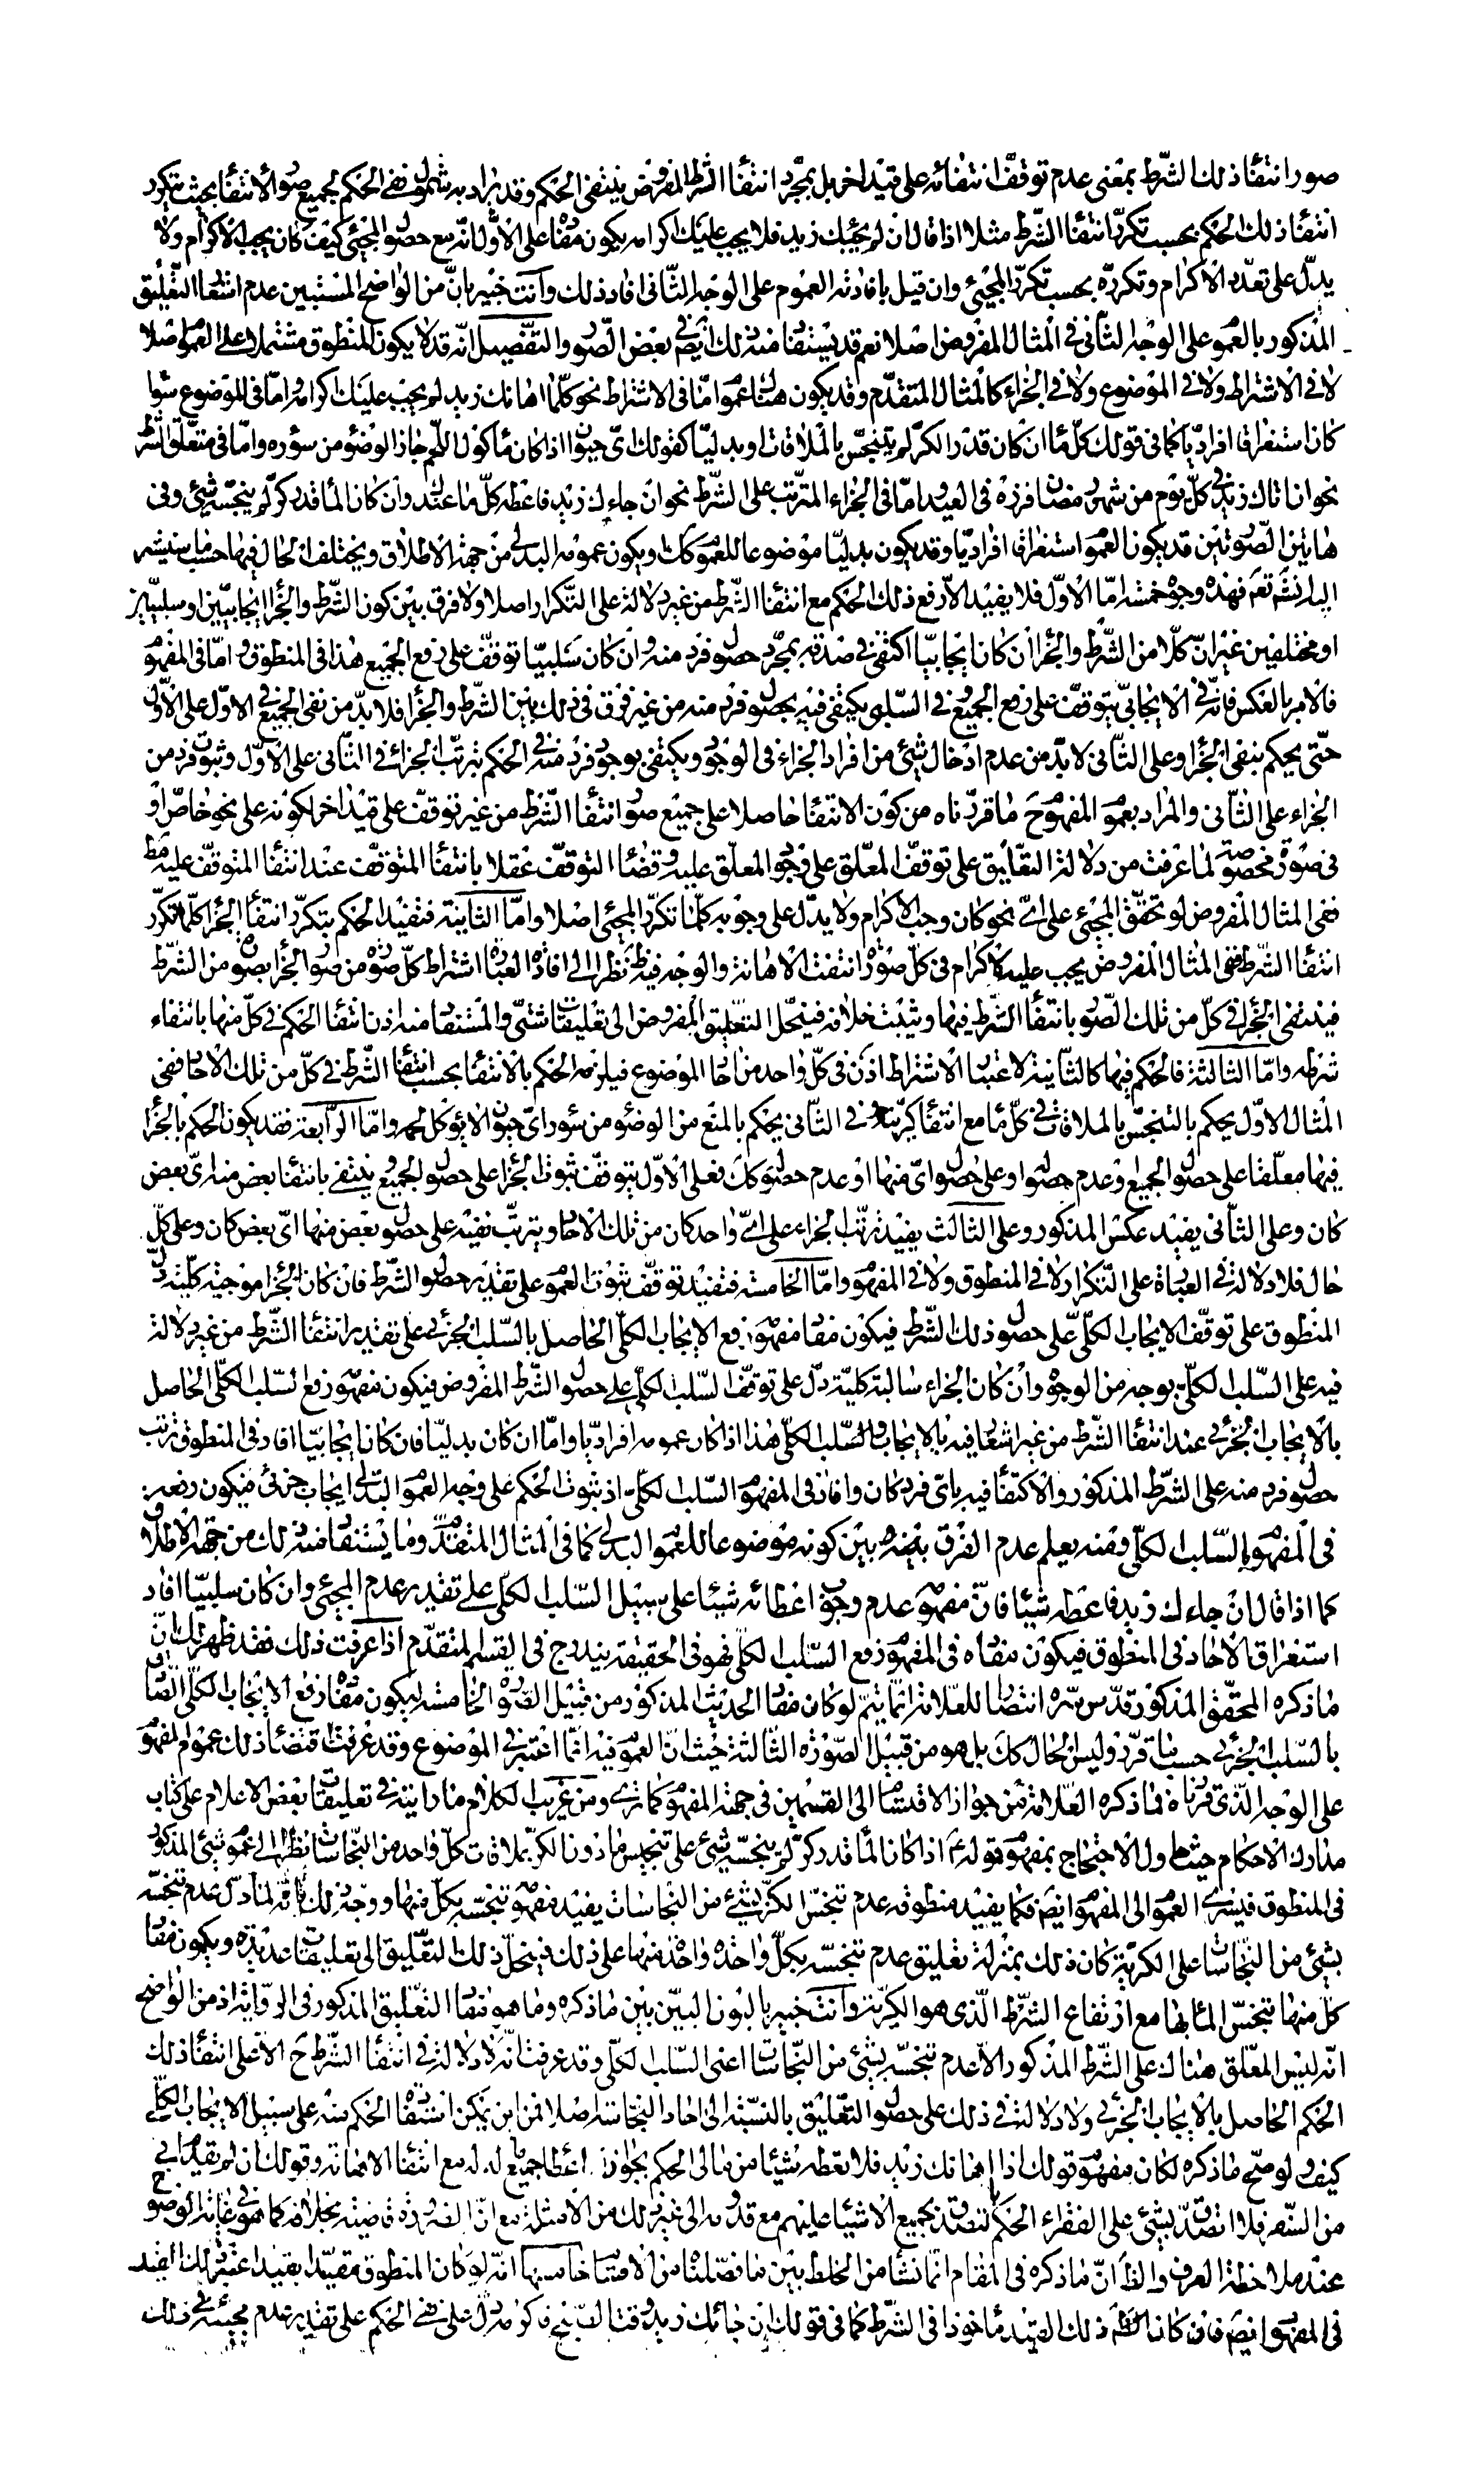 صور انتفاء ذلك الشرط بمعنى عدم توقف انتفائه على قيد اخر بل بمجرد انتفاء الشرط المفروض ينتفى الحكم وقد يراد به شمول نفى الحكم لجميع صور الانتفاء بحيث يتكرر
انتفاء ذلك الحكم بحسب تكرر انتفاء الشرط مثلا اذا قال ان لم يجئك زيد فلا يجب عليك اكرامه يكون مفاده على الاول انه مع حصول المجيئ كيف كان يجب الاكرام ولا
يدل على تعدد الاكرام وتكرره بحسب تكرر المجيئ وان قيل بافادته العموم على الوجه الثانى افاد ذلك وانت خبير بان من الواضح المستبين عدم اشعار التعليق
المذكور بالعموم على الوجه الثانى فى المثال المفروض اصلا نعم قد يستفاد منه ذلك ايضا فى بعض الصور والتفصيل انه قد لا يكون المنطوق مشتملا على العموم اصلا
لا فى الاشتراط ولا فى الموضوع ولا فى الجزاء كالمثال المتقدم وقد يكون هناك عموم اما فى الاشتراط نحو كلما اهانك زيد لم يجب عليك اكرامه واما فى الموضوع سواء
كان استغراقا افراديا كما فى قولك كل ماء ان كان قدر الكر لم يتنجس بالملاقات او بدليا كقولك اى حيوان اذا كان مأكول اللحم جاز الوضوء من سؤره واما فى متعلق الشرط
نحو ان اتاك زيد فى كل يوم من شهر رمضان فزره فى العيد واما فى الجزاء المترتب على الشرط نحو ان جاءك زيد فاعطه كل ما عندك وان كان الماء قدر كر لم ينجسه شيئ وفى
هاتين الصورتين قد يكون العموم استغراقا افراديا وقد يكون بدليا موضوعا للعموم كك او يكون عمومه البدلى من جهة الاطلاق ويختلف الحال فيها حسبما سنشير
اليه انشاء الله تعالى فهذه وجوه خمسة اما الاول فلا يفيد الا رفع ذلك الحكم مع انتفاء الشرط من غير دلالة على التكرار اصلا ولا فرق بين كون الشرط والجزاء ايجابيين او سلبيين
او مختلفين غير ان كلا من الشرط والجزاء ان كان ايجابيا اكتفى فى صدقه بمجرد حصول فرد منه وان كان سلبيا توقف على رفع الجميع هذا فى المنطوق واما فى المفهوم
فالامر بالعكس فانه فى الايجابى يتوقف على رفع الجميع وفى السلبى يكتفى فيه بحصول فرد منه من غير فرق فى ذلك بين الشرط والجزاء فلا بد من نفى الجميع فى الاول على الاول
حتى يحكم بنفى الجزاء وعلى الثانى لا بد من عدم ادخال شيئ من افراد الجزاء فى الوجود ويكتفى بوجود فرد منه فى الحكم بترتب الجزاء فى الثانى على الاول وثبوت فرد من
الجزاء على الثانى والمراد بعموم المفهوم ح ما قررناه من كون الانتفاء حاصلا على جميع صور انتفاء الشرط من غير توقف على قيد اخر لكونه على نحو خاص او
فى صورة مخصوصة لما عرفت من دلالة التعليق على توقف المعلق على وجود المعلق عليه وقضاء التوقف عقلا بانتفاء المتوقف عند انتفاء المتوقف عليه مط
ففى المثال المفروض لو تحقق المجيئ على اى نحو كان وجب الاكرام ولا يدل على وجوبه كلما تكرر المجيئ اصلا واما الثانية فتفيد الحكم بتكرر انتفاء الجزاء كلما تكرر
انتفاء الشرط ففى المثال المفروض يجب عليه الاكرام فى كل صورة انتفت الاهانة والوجه فيه ظ نظرا الى افادة العبارة اشتراط كل صورة من صور الجزاء بصورة من الشرط
فينتفى الجزاء فى كل من تلك الصور بانتفاء الشرط فيها ويثبت خلافه فينحل التعليق المفروض الى تعليقات شتى والمستفاد منه اذن انتفاء الحكم فى كل منها بانتفاء
شرطه واما الثالثة فالحكم فيها كالثانية لاعتبار الاشتراط اذن فى كل واحد من احاد الموضوع فيلزمه الحكم بالانتفاء بحسب انتفاء الشرط فى كل من تلك الاحاد ففى
المثال الاول يحكم بالتنجس بالملاقات فى كل ماء مع انتفاء كريته وفى الثانى يحكم بالمنع من الوضوء من سؤر اى حيوان لا يؤكل لحمه واما الرابعة فقد يكون الحكم بالجزاء
فيها معلقا على حصول الجميع وعدم حصوله او على حصول اى منها او عدم حصوله كك فعلى الاول يتوقف ثبوت الجزاء على حصول الجميع وينتفى بانتفاء بعض منه اى بعض
كان وعلى الثانى يفيد عكس المذكور وعلى الثالث يفيد ترتب الجزاء على اى واحد كان من تلك الاحاد ويترتب نفيه على حصول بعض منها اى بعض كان وعلى كل
حال فلا دلالة فى العبارة على التكرار لا فى المنطوق ولا فى المفهوم واما الخامسة فتفيد توقف ثبوت العموم على تقدير حصول الشرط فان كان الجزاء موجبة كلية دل
المنطوق على توقف الايجاب الكلى على حصول ذلك الشرط فيكون مفاد مفهومه رفع الايجاب الكلى الحاصل بالسلب الجزئى على تقدير انتفاء الشرط من غير دلالة
فيه على السلب الكلى بوجه من الوجوه وان كان الجزاء سالبة كلية دل على توقف السلب الكلى على حصول الشرط المفروض فيكون مفهومه رفع السلب الكلى الحاصل
بالايجاب الجزئى عند انتفاء الشرط من غير اشعار فيه بالايجاب والسلب الكلى هذا اذا كان عمومه افراديا واما ان كان بدليا فان كان ايجابيا افاد فى المنطوق ترتب
حصول فرد منه على الشرط المذكور والاكتفاء فيه باى فرد كان وافاد فى المفهوم السلب الكلى اذ ثبوت الحكم على وجه العموم البدلى ايجاب جزئى فيكون رفعه
فى المفهوم بالسلب الكلى ومنه يعلم عدم الفرق بينه وبين كونه موضوعا للعموم البدلى كما فى المثال المتقدم وما يستفاد منه ذلك من جهة الاطلاق
كما اذا قال ان جاءك زيد فاعطه شيئا فان مفهومه عدم وجوب اعطائه شيئا على سبيل السلب الكلى على تقدير عدم المجيئ وان كان سلبيا افاد
استغراق الاحاد فى المنطوق فيكون مفاده فى المفهوم رفع السلب الكلى فهو فى الحقيقة يندرج فى القسم المتقدم اذا عرفت ذلك فقد ظهر لك ان
ما ذكره المحقق المذكور قدس سره انتصارا للعلامة انما يتم لو كان مفاد الحديث المذكور من قبيل الصورة الخامسة ليكون مفاده رفع الايجاب الكلى الصادق
بالسلب الجزئى حسبما قرر وليس الحال كك بل هو من قبيل الصورة الثالثة حيث ان العموم فيه انما اعتبر فى الموضوع وقد عرفت اقتضاء ذلك عموم المفهوم
على الوجه الذى قررناه فما ذكره العلامة من جواز الانقسام الى القسمين فى جهة المفهوم كما ترى ومن غريب الكلام ما رايته فى تعليقات بعض الاعلام على كتاب
مدارك الاحكام حيث حاول الاحتجاج بمفهوم قوله ع اذا كان الماء قدر كر لم ينجسه شيئ على تنجيس ما دون الكر بملاقات كل واحد من النجاسات نظرا الى عموم شيئ المذكور
فى المنطوق فيسرى العموم الى المفهوم ايضا فكما يفيد منطوقه عدم تنجس الكر بشيئ من النجاسات يفيد مفهومه تنجسه بكل منها ووجه ذلك بانه لما دل عدم تنجسه
بشيئ من النجاسات على الكرية كان ذلك بمنزلة تعليق عدم تنجسه بكل واحدة واحدة منها على ذلك فينحل ذلك التعليق الى تعليقات عديدة ويكون مفاد
كل منها تنجس الماء بها مع ارتفاع الشرط الذى هو الكرية وانت خبير بالبون البين بين ما ذكره وما هو مفاد التعليق المذكور فى الرواية اذ من الواضح
انه ليس المعلق هناك على الشرط المذكور الا عدم تنجسه بشيئ من النجاسات اعنى السلب الكلى وقد عرفت انه لا دلالة فى انتفاء الشرط ح الا على انتفاء ذلك
الحكم الحاصل بالايجاب الجزئى ولا دلالة فى ذلك على حصول التعليق بالنسبة الى احاد النجاسات اصلا فمن اين يمكن استفادة الحكم منه على سبيل الايجاب الكلى
كيف ولو صح ما ذكره لكان مفهوم قولك اذا اهانك زيد فلا تعطه شيئا من مالى الحكم بجواز اعطاء جميع له مع انتفاء الاهانة وقولك ان لم يقدم ابى
من السفر فلا اتصدق بشيئ على الفقراء الحكم بتصدق بجميع الاشياء عليهم مع قدومه الى غير ذلك من الامثلة مع ان الضرورة قاضية بخلافه كما هو فى غاية الوضوح
عند ملاحظة العرف والظ ان ما ذكره فى المقام انما نشأ من الخلط بين ما فصلناه من الاقسام خامسها انه لو كان المنطوق مقيدا بقيد اعتبر ذلك القيد
فى المفهوم ايضا فان كان ذلك القيد مأخوذا فى الشرط كما فى قولك ان جائك زيد وقت الصبح فاكرمه دل على نفى الحكم على تقدير عدم مجيئه فى ذلك